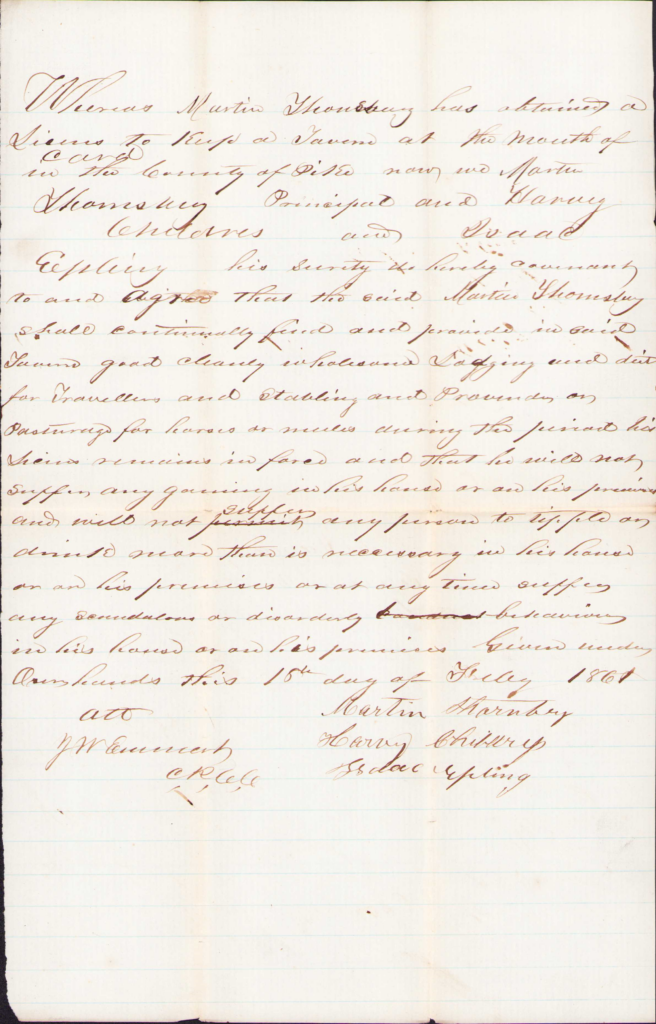 Whereas Martin Thornsbury has obtained a
Licens to Keep a Tavern at the mouth of
card
in the County of Pike now we Martin
Thornsbury Principal and Harvey
Childres and Isaac
Epling his surity do hereby covenant
to and agree that the said Martin Thornsbury
shall continually find and provide in said
Tavern good cleanly wholesome Lodging and diet
for Travellers and Stabling and Provender or
Pasturage for horses or mules during the period his
Licens remains in force and that he will not
suffer any gaming in his house or on his premises
suffer
and will not permit any person to tipple or
drink more than is necessary in his house
or on his premises or at any time suffer
any scandalous or disorderly behavior
in his house or on his premises Given under
Our hands this 15th day of Feby 1861
att Martin Thornbey
J W Emmert Harvy Childryes
Isaac Epling